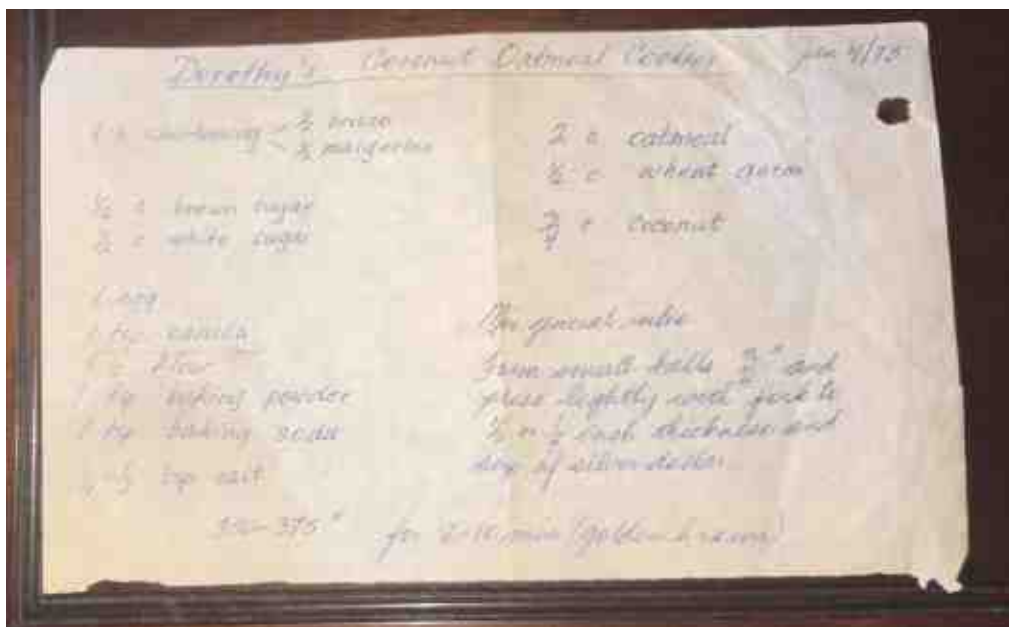 Dorothy's Coconut Oatmeal Cookies
1 c shortening
½ margarine
½ c brown sugar
½ c white sugar
1 egg
1 tsp vanilla
1 c flour
1 tsp baking powder
1 tsp baking soda
tsp salt
2 c oatmeal
½ c wheat germ
¾ c coconut
general rules
Form small balls ¾" and
press lightly with fork to
inch thickness and
of silver dollar
375° for min (golden brown)